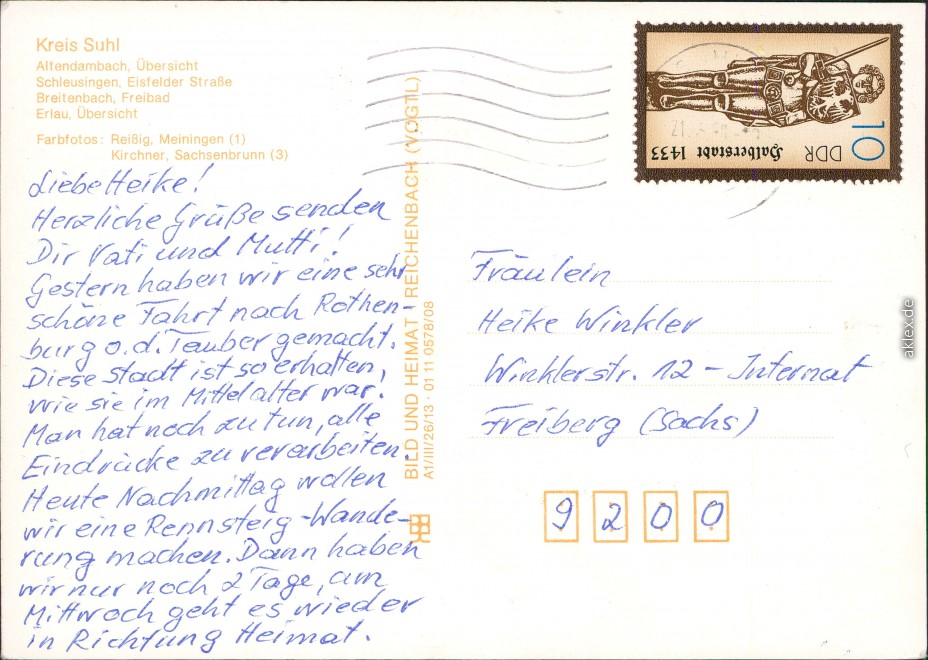 Kreis Suhl
Altendambach, Übersicht
Schleusingen, Eisfelder Straße
Breitenbach, Freibad
Erlau, Übersicht
Farbfotos: Reißig, Meiningen (1)
Kirchner, Sachsenbrunn (3)
Liebe Heike!
Herzliche Grüße senden
Dir Vati und Mutti!
Gestern haben wir eine sehr
schöne Fahrt nach Rothen-
burg o.d. Tauber gemacht.
Diese Stadt ist so erhalten,
wie sie im Mittelalter war.
Man hat noch zu tun, alle
Eindrücke zu verarbeiten.
Heute Nachmittag wollen
wir eine Rennsteig-Wande-
rung machen. Dann haben
wir nur noch 2 Tage, am
Mittwoch geht es wieder
in Richtung Heimat.
BILD UND HEIMAT REICHENBACH (VOGTL)
A1/III/26/13 · 01 11 0578/08
10
DDR
Halberstadt 1433
Fräulein
Heike Winkler
Winklerstr. 12 - Internat
Freiberg (Sachs)
9200
aklex.de